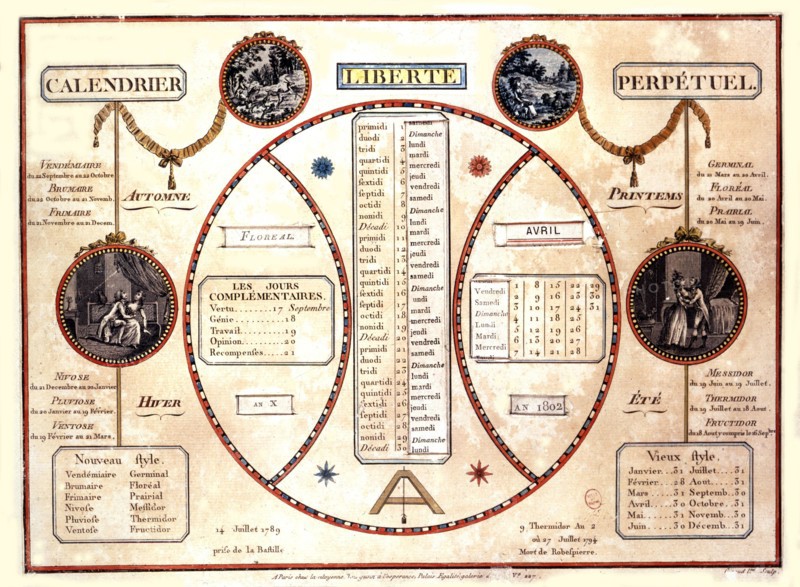 CALENDRIER
LIBERTE
PERPÉTUEL.
VENDÉMIAIRE
du 22 Septembre au 22 Octobre
BRUMAIRE
du 22 Octobre au 21 Novemb.
FRIMAIRE
du 21 Novembre au 21 Decem.
AUTOMNE
NIVOSE
du 21 Decembre au 20 Janvier
PLUVIOSE
du 20 Janvier au 19 Février.
VENTOSE
du 19 Février au 21 Mars.
HIVER
Nouveau ſtyle.
Vendémiaire Germinal
Brumaire Floréal
Frimaire Prairial
Nivose Meſſidor
Pluviose Thermidor
Ventose Fructidor
FLOREAL
LES JOURS
COMPLÉMENTAIRES.
Vertu........17 Septembre
Génie........18
Travail........19
Opinion........20
Recompenses.....21
AN X
primidi 1 samedi
duodi 2 Dimanche
tridi 3 lundi
quartidi 4 mardi
quintidi 5 mercredi
sextidi 6 jeudi
septidi 7 vendredi
octidi 8 samedi
nonidi 9 Dimanche
Décadi 10 lundi
primidi 11 mardi
duodi 12 mercredi
tridi 13 jeudi
quartidi 14 vendredi
quintidi 15 samedi
sextidi 16 Dimanche
septidi 17 lundi
octidi 18 mardi
nonidi 19 mercredi
Décadi 20 jeudi
primidi 21 vendredi
duodi 22 samedi
tridi 23 Dimanche
quartidi 24 lundi
quintidi 25 mardi
sextidi 26 mercredi
septidi 27 jeudi
octidi 28 vendredi
nonidi 29 samedi
Décadi 30 Dimanche
lundi
AVRIL
Vendredi 2 9 16 23 30
Samedi 3 10 17 24
Dimanche 4 11 18 25
Lundi 5 12 19 26
Mardi 6 13 20 27
Mercredi 7 14 21 28
AN 1802
GERMINAL
du 21 Mars au 20 Avril.
FLORÉAL
du 20 Avril au 20 Mai.
PRAIRIAL
du 20 Mai au 19 Juin.
PRINTEMS
MESSIDOR
du 19 Juin au 19 Juillet.
THERMIDOR
du 19 Juillet au 18 Aout.
FRUCTIDOR
du 18 Aout y compris le 16 Sepbre
ÉTÉ
Vieux ſtyle.
Janvier..31 Juillet....31
Février...28 Aout.....31
Mars.....31 Septemb..30
Avril.....30 Octobre..31
Mai......31 Novemb..30
Juin.....30 Décemb..31
14 Juillet 1789
prise de la Bastille
9 Thermidor An 2
où 27 Juillet 1794
Mort de Robespierre.
A Paris chez la citoyenne Palais Egalité galerie